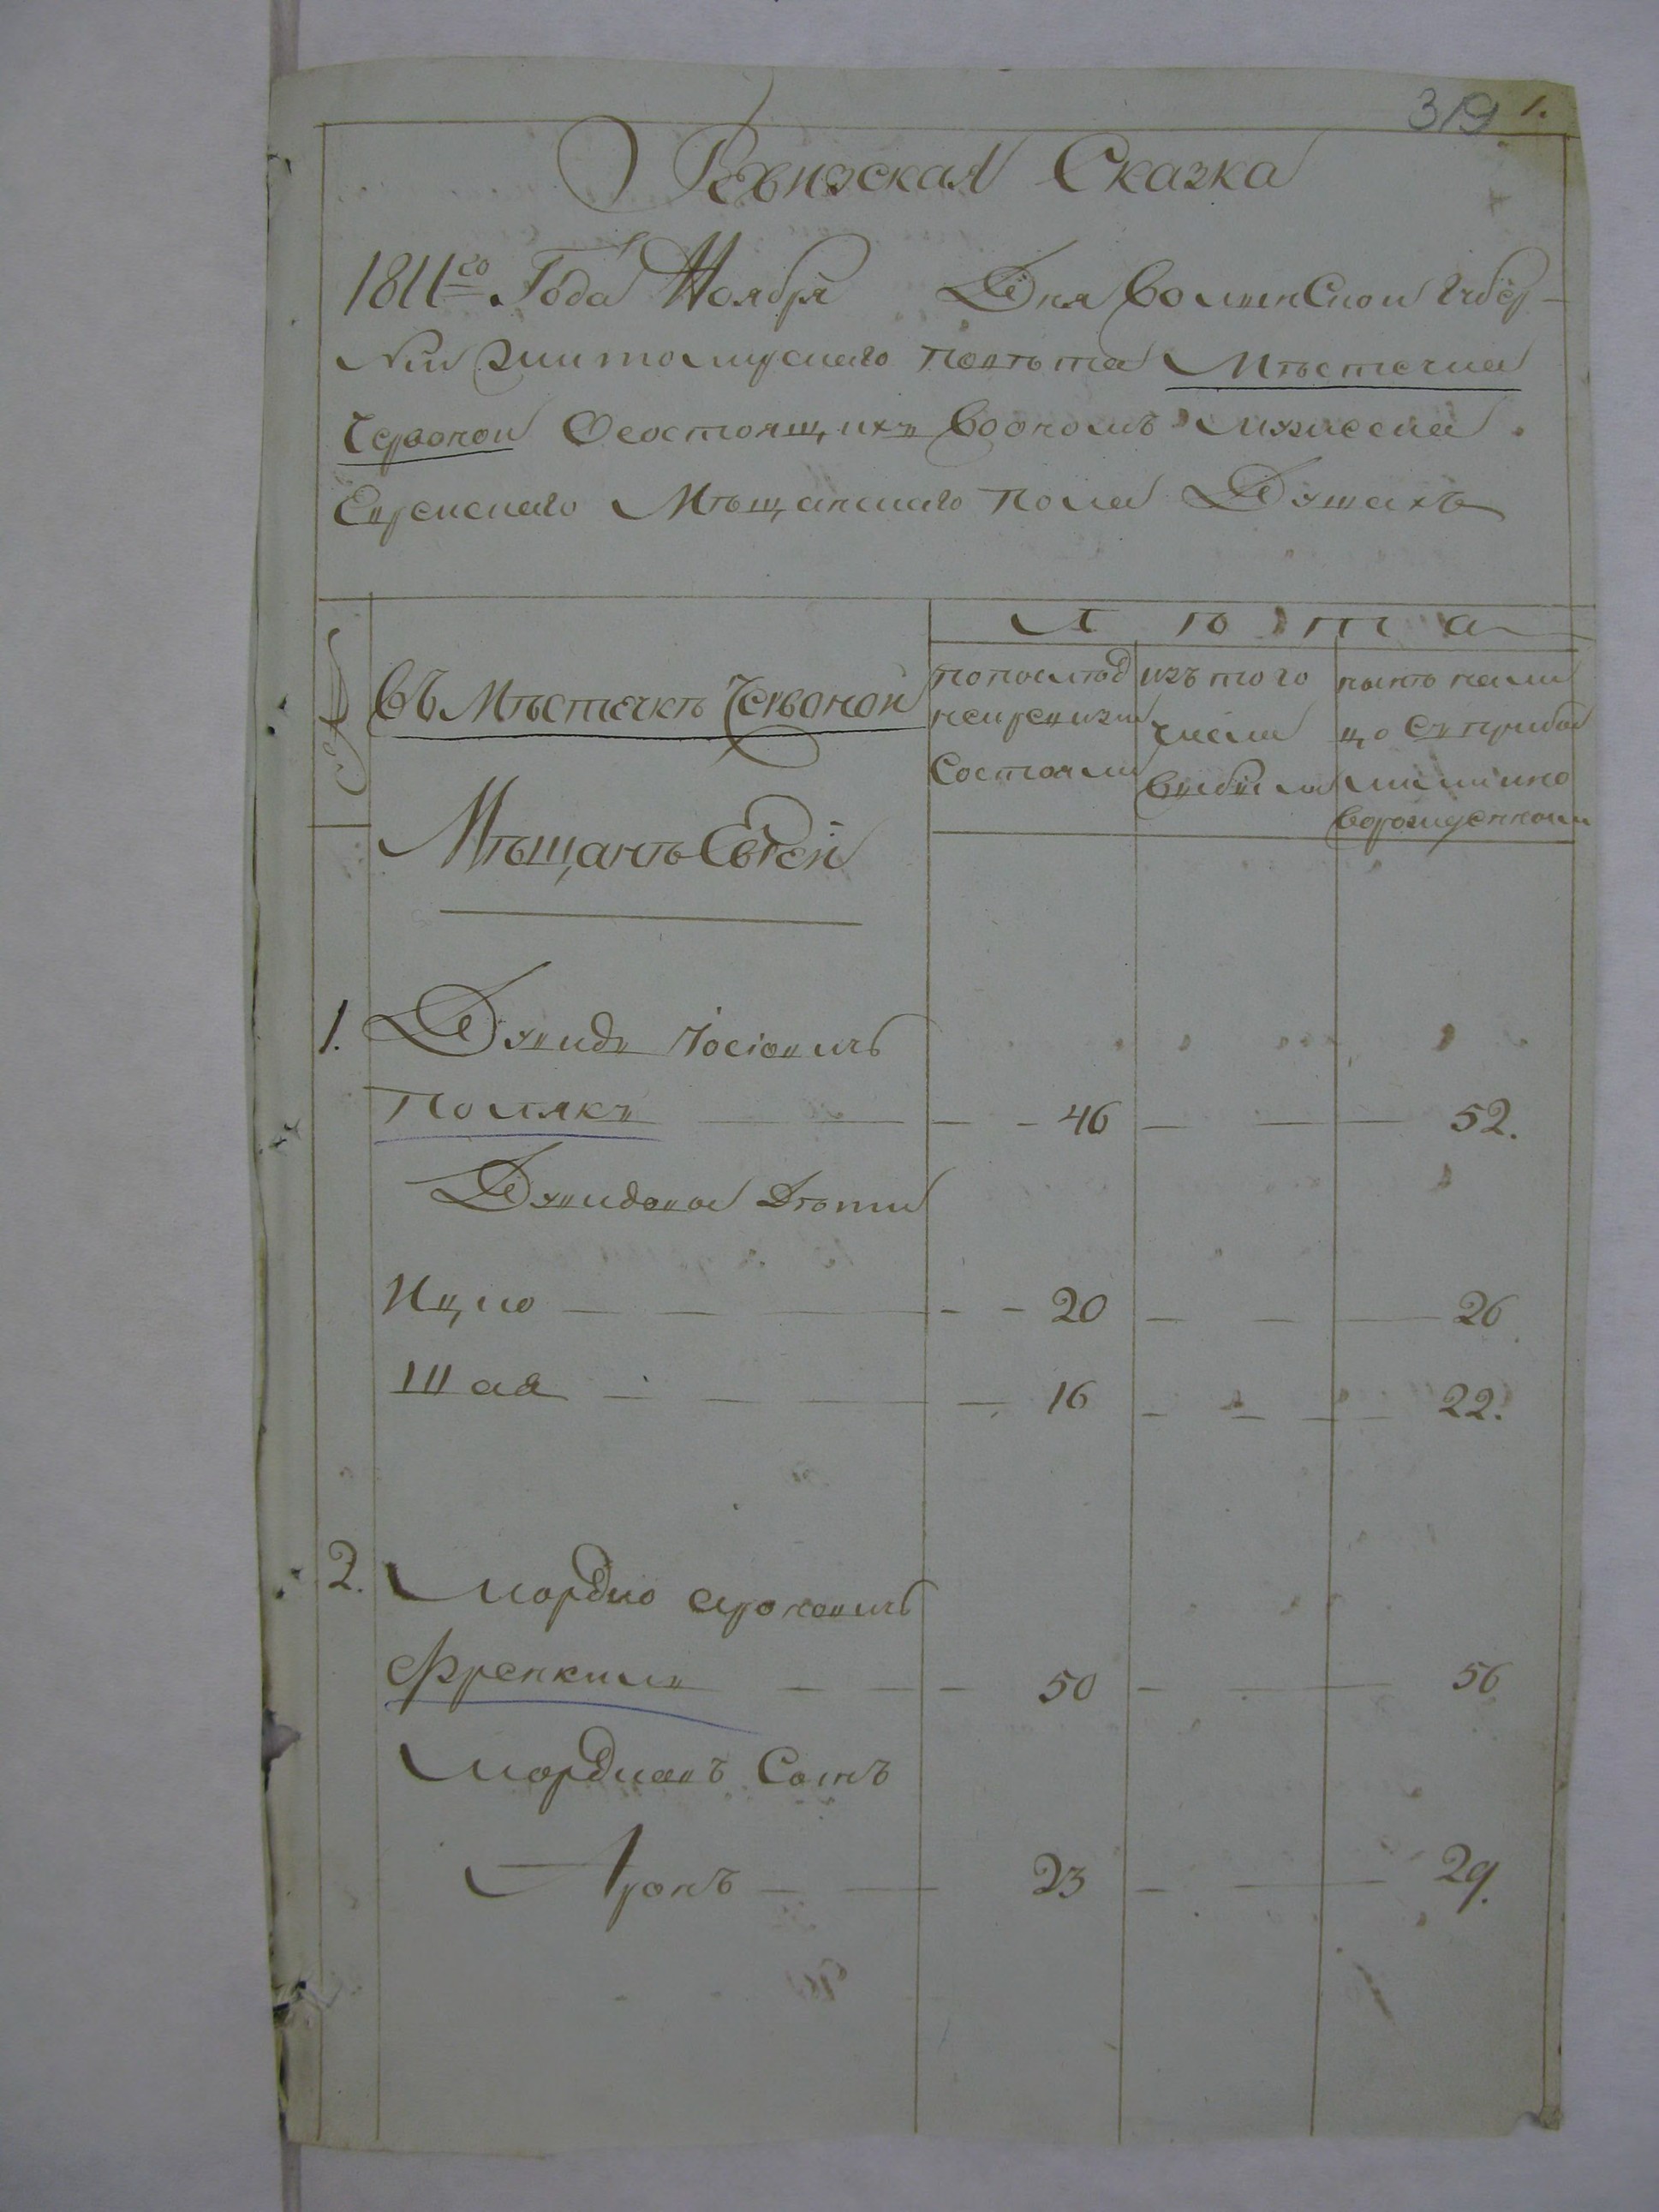 319 1.
Ревизская Сказка
1811го Года Ноября Дня Волинской Губер-
нии Житомирскаго Повѣта Мѣстечка
Червоной Осостоящихъ Воономъ мужеска
Еврейскаго Мѣщанскаго Пола Душахъ
№
Въ Мѣстечкѣ Червоной
Мѣщанѣ Еврей
Лѣта
по послѣд
ней ревизии
Состояли
изъ того
числа
выбыли
нынѣ нали
цо съ прибы
лими и но
ворожденними
1. Давидъ Іосіовичъ
Полякъ — — - 46 — — — 52.
Давидова Дѣти
Ицко — — — - - 20 — — — 26
Шая — — — — 16 — — — — 22.
2. Мордко Ароновичъ
Френкиль — — — 50 — — — 56
Мордковъ Сынъ
Аронъ — — 23 — — — 29.